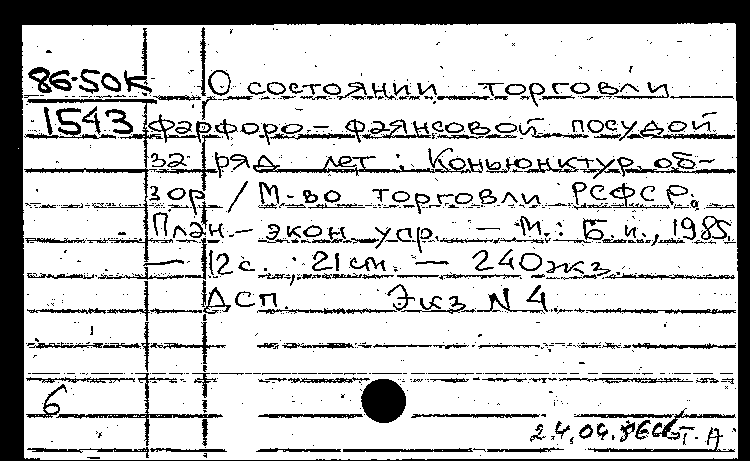 86-50К О состоянии торговли
1543 фарфоро-фаянсовой посудой
за ряд лет: Коньюнктур. об-
зор / М-во торговли РСФСР.
План.-экон упр. - М.: Б.и., 1985
— 12с.; 21см. — 240экз.
ДСП. Экз N 4
6